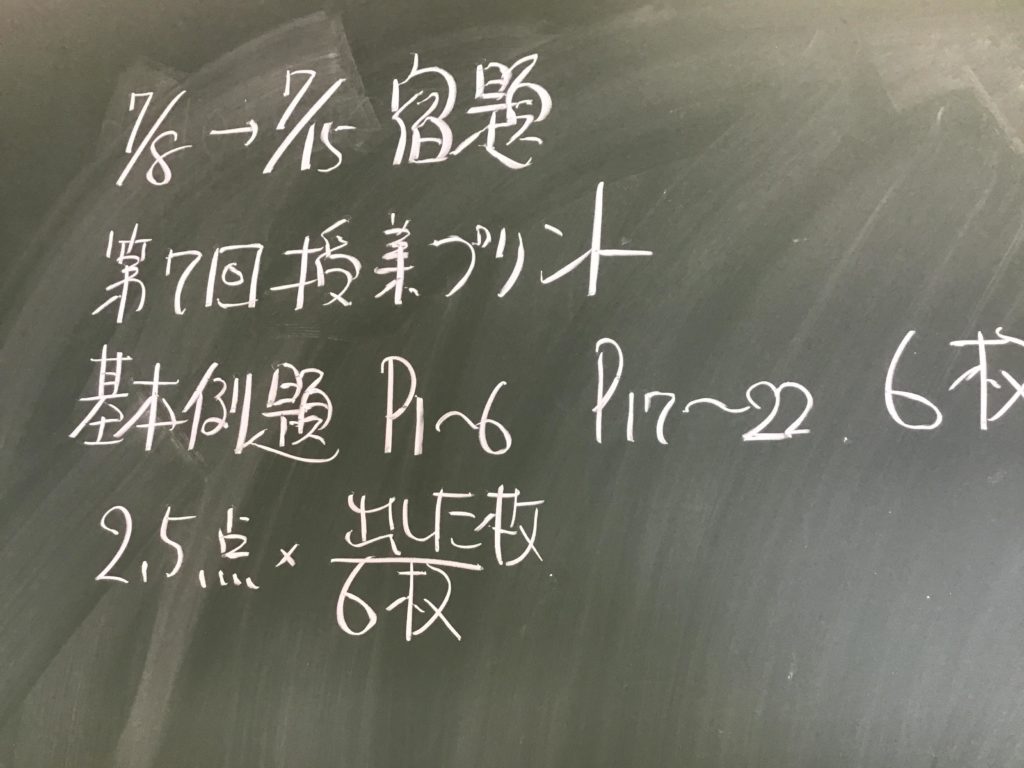 7/8→7/15 宿題
第7回授業プリント
基本例題 P1~6 P17~22 6枚
2.5点×出した枚/6枚